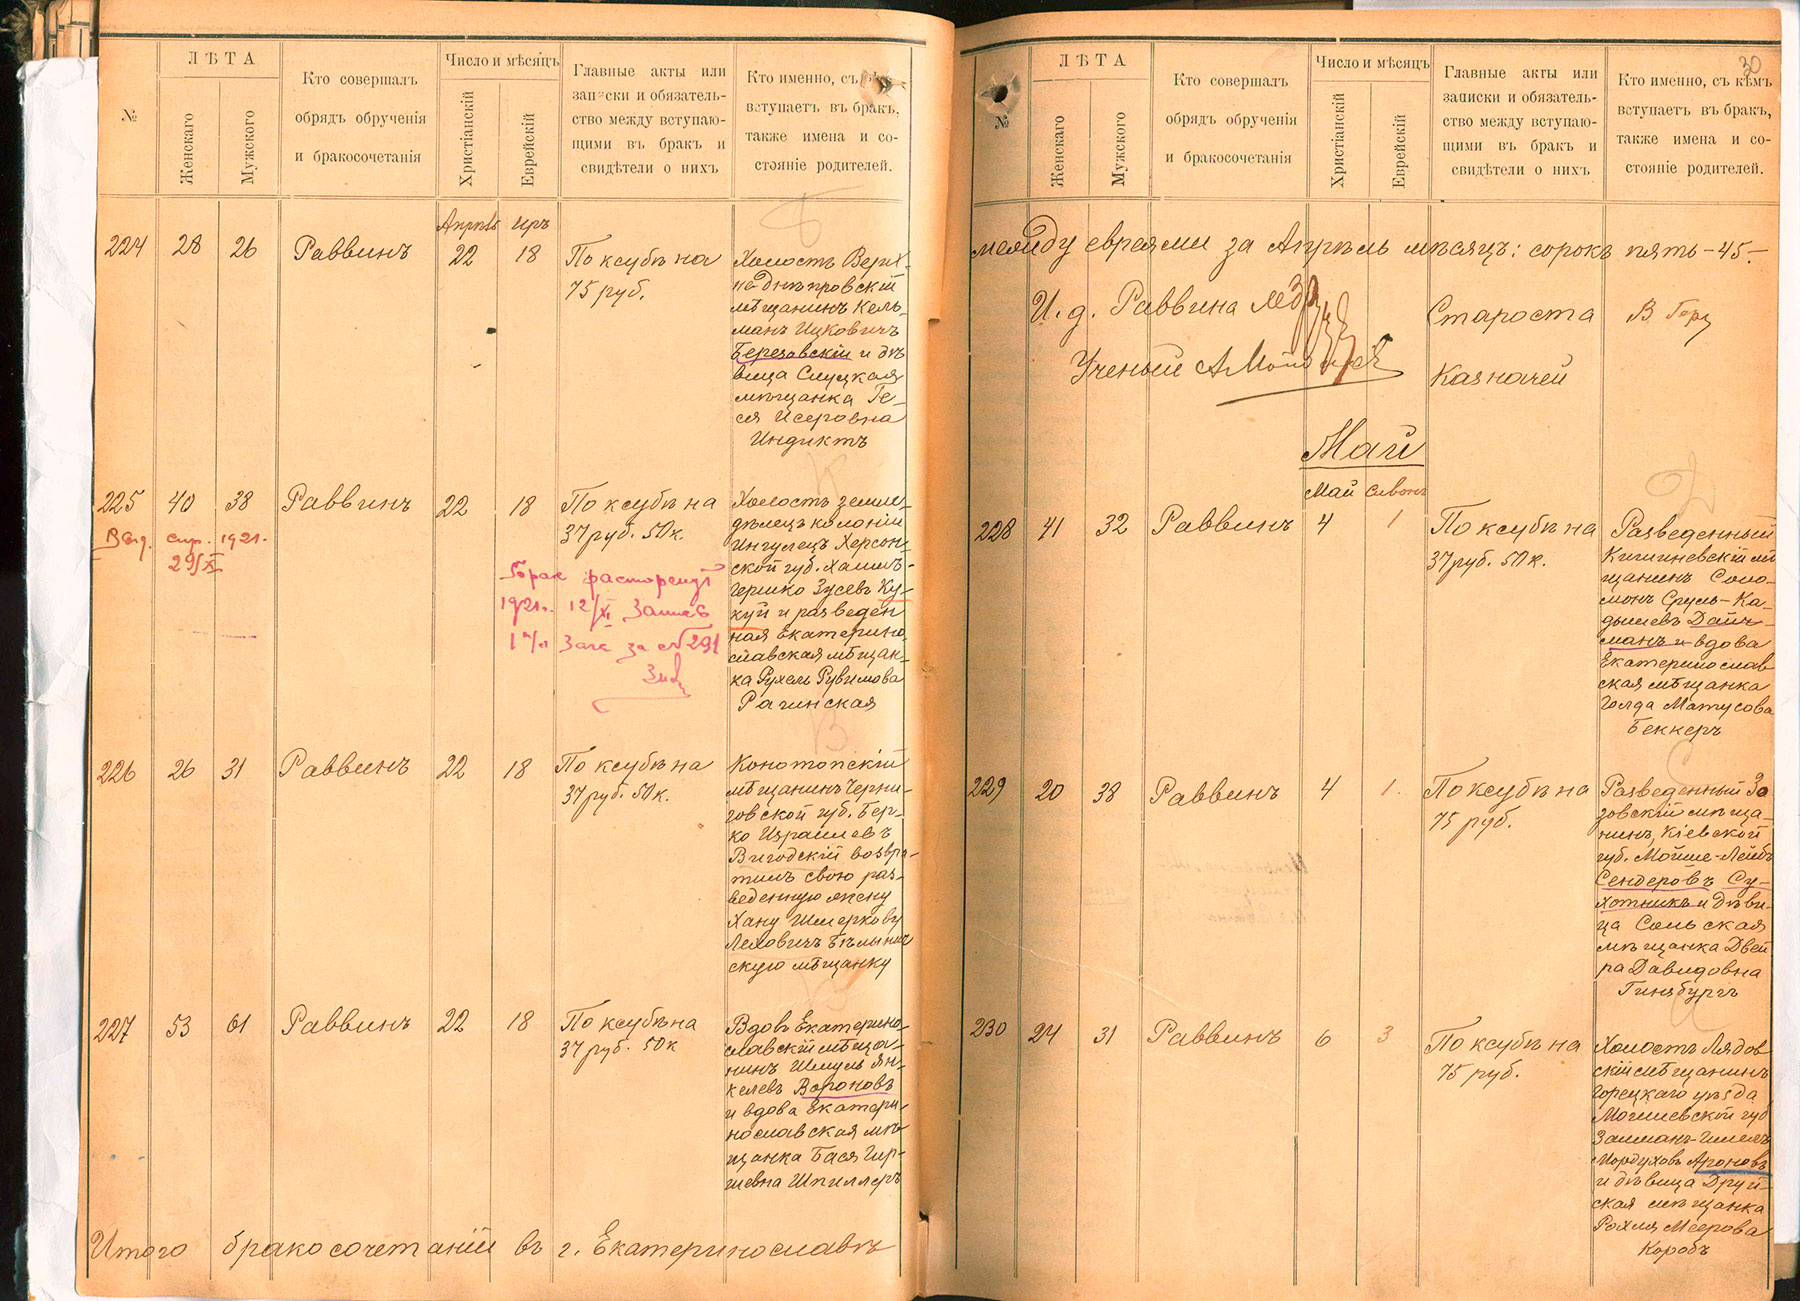 №
ЛѢТА
Женскаго
Мужского
Кто совершалъ
обрядъ обрученія
и бракосочетанія
Число и мѣсяцъ
Христіанскій
Еврейскій
Главные акты или
записки и обязатель-
ство между вступаю-
щими въ бракъ и
свидѣтели о нихъ
Кто именно, съ кѣмъ
вступаетъ въ бракъ,
также имена и со-
стояніе родителей.
Апрѣль Іиръ
224 28 26 Раввинъ 22 18 По ксубѣ на
75 руб.
Холостъ Верх-
неднѣпровскій
мѣщанинъ Кель-
манъ Ицковичъ
Березовскій и дѣ
вица Слуцкая
мѣщанка Ге-
ся Исеровна
Индиктъ
225 40 38 Раввинъ 22 18 По ксубѣ на
37 руб. 50 к.
Выд. спр. 1921.
29/XI
Брак расторгнут
1921г. 12/XI Запись
Загс за № 291
Холостъ земле-
дѣлецъ колоніи
Ингулецъ Херсон-
ской губ. Хаимъ-
Гершко Зусевъ Ку-
куй и разведен
ная Екатерино-
славская мѣщан-
ка Рухель Рувимова
Рагинская
226 26 31 Раввинъ 22 18 По ксубѣ на
37 руб. 50 к.
Конотопскій
мѣщанинъ Черни-
говской губ. Бер-
ко Израилевъ
Вигодскій возвра-
тилъ свою раз-
веденную жену
Хану Шмеркову
Лехович
скую мѣщанку
227 53 61 Раввинъ 22 18 По ксубѣ на
37 руб. 50 к
Вдовъ Екатерино-
славскій мѣща-
нинъ Шмуль Ян-
келевъ Вороновъ
и вдова Екатери-
нославская мѣ-
щанка Бася Гир-
шевна Шпиллеръ
Итого бракосочетаній въ г. Екатеринославѣ
30
№
ЛѢТА
Женскаго
Мужского
Кто совершалъ
обрядъ обрученія
и бракосочетанія
Число и мѣсяцъ
Христіанскій
Еврейскій
Главные акты или
записки и обязатель-
ство между вступаю-
щими въ бракъ и
свидѣтели о нихъ
Кто именно, съ кѣмъ
вступаетъ въ бракъ,
также имена и со-
стояніе родителей.
между евреями за Апрѣль мѣсяцъ: сорокъ пять - 45. -
И. д. Раввина Староста
Ученый Казначей
Май
Май Сивонъ
228 41 32 Раввинъ 4 1 По ксубѣ на
37 руб. 50 к.
Разведенный
Кишиневскій мѣ
щанинъ Соло-
монъ Сруль-Ка-
дышевъ Дайч-
манъ и вдова
Екатеринослав
ская мѣщанка
Голда Матусова
Беккеръ
229 20 38 Раввинъ 4 1. По ксубѣ на
75 руб.
Разведенный
мѣща-
нинъ, Кіевской
губ. Мойше-Лейбъ
Сендеровъ Су-
хотникъ и дѣви-
ца Сольская
мѣщанка Двей
ра Давидовна
Гинзбургъ
230 24 31 Раввинъ 6 3 По ксубѣ на
75 руб.
Холостъ Лядов
скій мѣщанинъ
Горецкаго уѣзда
Могилевской губ
Залманъ-Шмелъ
Мордуховъ Ароновъ
и дѣвица Друй-
ская мѣщанка
Рохля Меерова
Коробъ